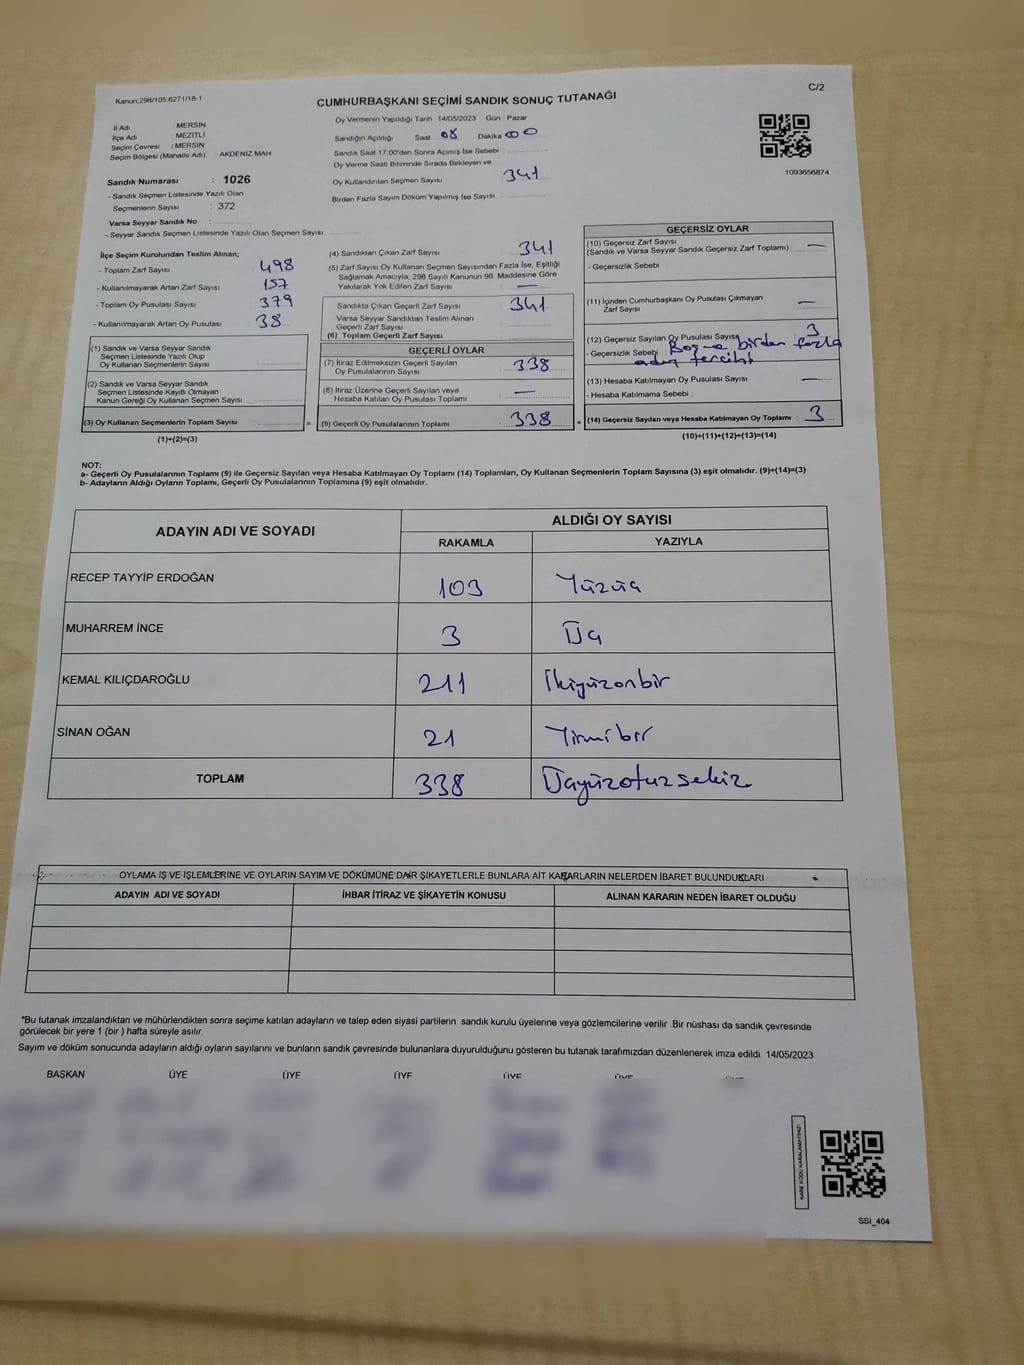 Kanun:298/105;6271/18-1
CUMHURBAŞKANI SEÇİMİ SANDIK SONUÇ TUTANAĞI
C/2
İl Adı : MERSİN
İlçe Adı : MEZİTLİ
Seçim Çevresi : MERSİN
Seçim Bölgesi (Mahalle Adı) : AKDENİZ MAH
Sandık Numarası : 1026
- Sandık Seçmen Listesinde Yazılı Olan
Seçmenlerin Sayısı : 372
Varsa Seyyar Sandık No :
- Seyyar Sandık Seçmen Listesinde Yazılı Olan Seçmen Sayısı :
Oy Vermenin Yapıldığı Tarih :14/05/2023 Gün : Pazar
Sandığın Açıldığı Saat 08 Dakika 00
Sandık Saat 17:00'den Sonra Açılmış İse Sebebi
Oy Verme Saati Bitiminde Sırada Bekleyen ve
Oy Kullandırılan Seçmen Sayısı 341
Birden Fazla Sayım Döküm Yapılmış İse Sayısı
1093656874
İlçe Seçim Kurulundan Teslim Alınan;
- Toplam Zarf Sayısı 498
- Kullanılmayarak Artan Zarf Sayısı 157
- Toplam Oy Pusulası Sayısı 379
- Kullanılmayarak Artan Oy Pusulası 38
(1) Sandık ve Varsa Seyyar Sandık
Seçmen Listesinde Yazılı Olup
Oy Kullanan Seçmenlerin Sayısı
(2) Sandık ve Varsa Seyyar Sandık
Seçmen Listesinde Kayıtlı Olmayan
Kanun Gereği Oy Kullanan Seçmen Sayısı
(3) Oy Kullanan Seçmenlerin Toplam Sayısı
(1)+(2)=(3)
(4) Sandıktan Çıkan Zarf Sayısı 341
(5) Zarf Sayısı Oy Kullanan Seçmen Sayısından Fazla İse, Eşitliği
Sağlamak Amacıyla; 298 Sayılı Kanunun 98. Maddesine Göre
Yakılarak Yok Edilen Zarf Sayısı —
Sandıkta Çıkan Geçerli Zarf Sayısı 341
Varsa Seyyar Sandıktan Teslim Alınan
Geçerli Zarf Sayısı
(6) Toplam Geçerli Zarf Sayısı
GEÇERLİ OYLAR
(7) İtiraz Edilmeksizin Geçerli Sayılan
Oy Pusulalarının Sayısı 338
(8) İtiraz Üzerine Geçerli Sayılan veya
Hesaba Katılan Oy Pusulası Toplamı —
= (9) Geçerli Oy Pusulalarının Toplamı 338 +
GEÇERSİZ OYLAR
(10) Geçersiz Zarf Sayısı
(Sandık ve Varsa Seyyar Sandık Geçersiz Zarf Toplamı) : —
- Geçersizlik Sebebi :
(11) İçinden Cumhurbaşkanı Oy Pusulası Çıkmayan
Zarf Sayısı —
(12) Geçersiz Sayılan Oy Pusulası Sayısı 3
- Geçersizlik Sebebi : birden fazla
aday tercihi
(13) Hesaba Katılmayan Oy Pusulası Sayısı : —
- Hesaba Katılmama Sebebi :
(14) Geçersiz Sayılan veya Hesaba Katılmayan Oy Toplamı : 3
(10)+(11)+(12)+(13)=(14)
NOT:
a- Geçerli Oy Pusulalarının Toplamı (9) ile Geçersiz Sayılan veya Hesaba Katılmayan Oy Toplamı (14) Toplamları, Oy Kullanan Seçmenlerin Toplam Sayısına (3) eşit olmalıdır. (9)+(14)=(3)
b- Adayların Aldığı Oyların Toplamı, Geçerli Oy Pusulalarının Toplamına (9) eşit olmalıdır.
ADAYIN ADI VE SOYADI ALDIĞI OY SAYISI
RAKAMLA YAZIYLA
RECEP TAYYİP ERDOĞAN 103 Yüzüç
MUHARREM İNCE 3 Üç
KEMAL KILIÇDAROĞLU 211 İkiyüzonbir
SİNAN OĞAN 21 Yirmibir
TOPLAM 338 Üçyüzotuzsekiz
OYLAMA İŞ VE İŞLEMLERİNE VE OYLARIN SAYIM VE DÖKÜMÜNE DAİR ŞİKAYETLERLE BUNLARA AİT KARARLARIN NELERDEN İBARET BULUNDUKLARI
ADAYIN ADI VE SOYADI İHBAR İTİRAZ VE ŞİKAYETİN KONUSU ALINAN KARARIN NEDEN İBARET OLDUĞU
*Bu tutanak imzalandıktan ve mühürlendikten sonra seçime katılan adayların ve talep eden siyasi partilerin sandık kurulu üyelerine veya gözlemcilerine verilir .Bir nüshası da sandık çevresinde
görülecek bir yere 1 (bir ) hafta süreyle asılır.
Sayım ve döküm sonucunda adayların aldığı oyların sayılarını ve bunların sandık çevresinde bulunanlara duyurulduğunu gösteren bu tutanak tarafımızdan düzenlenerek imza edildi 14/05/2023
BAŞKAN ÜYE ÜYE ÜYE ÜYE ÜYE
KARE KODU KARALAMAYINIZ!
SSI_404